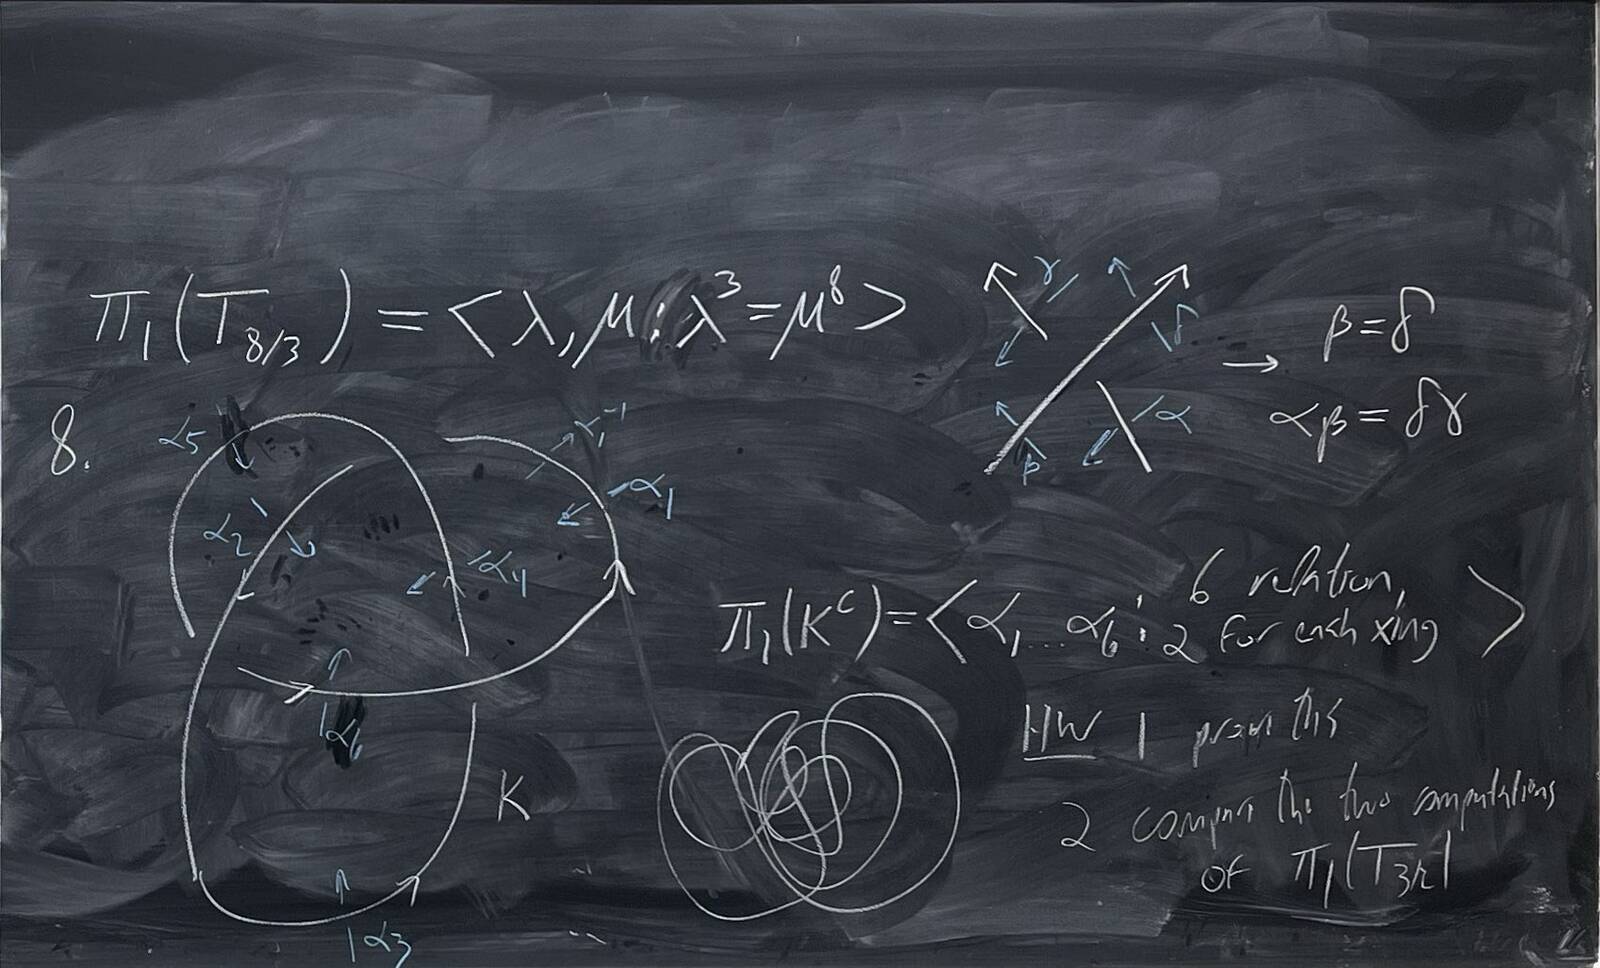 π₁(T_{8/3}) = <λ, μ : λ³ = μ⁸>
γ
δ
α
β
→ β = δ
αβ = δγ
8.
α₅
α₁⁻¹
α₁
α₂
α₄
α₆
K
α₃
π₁(Kᶜ) = <α₁ ... α₆ : 6 relation, 2 for each xing>
HW 1 prove this
2 compare the two computations
of π₁(T_{3/2})